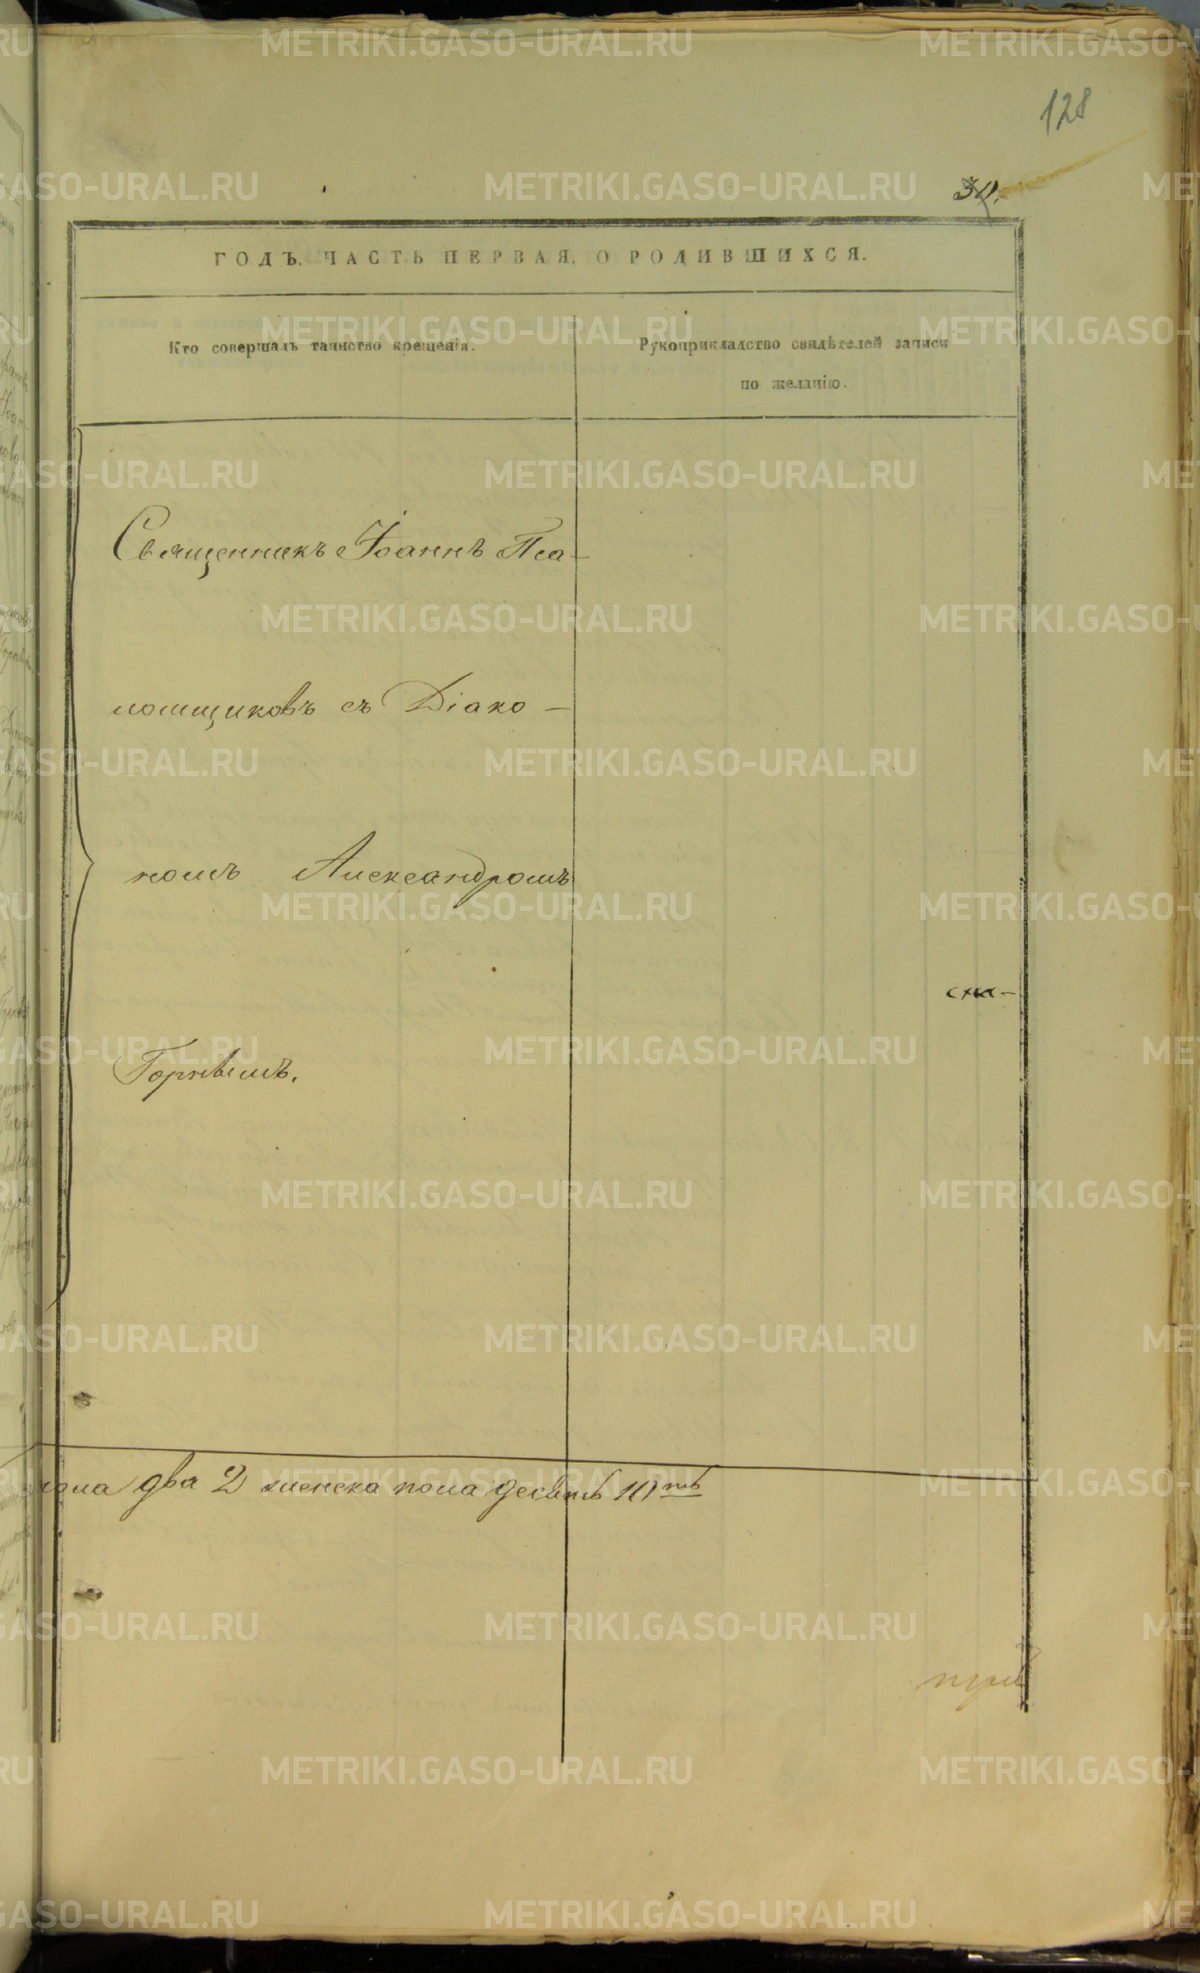 128
ГОДЪ. ЧАСТЬ ПЕРВАЯ, О РОДИВШИХСЯ.
Кто совершалъ таинство крещенія.
Рукоприкладство свидѣтелей записи
по желанію.
Священникъ Іоаннъ Пса-
ломщиковъ съ Діако-
номъ Александромъ
Горнымъ.
ска-
пола два 2 женска пола десять 10ть
METRIKI.GASO-URAL.RU